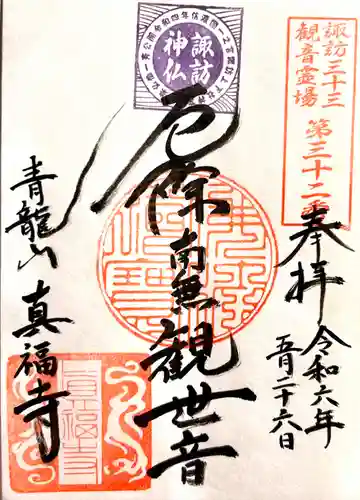 諏訪三十三
観音霊場
第三十二番
奉拝
令和六年
五月二十六日
諏訪
神仏
厄除
南無観世音
青龍山
真福寺
真福寺